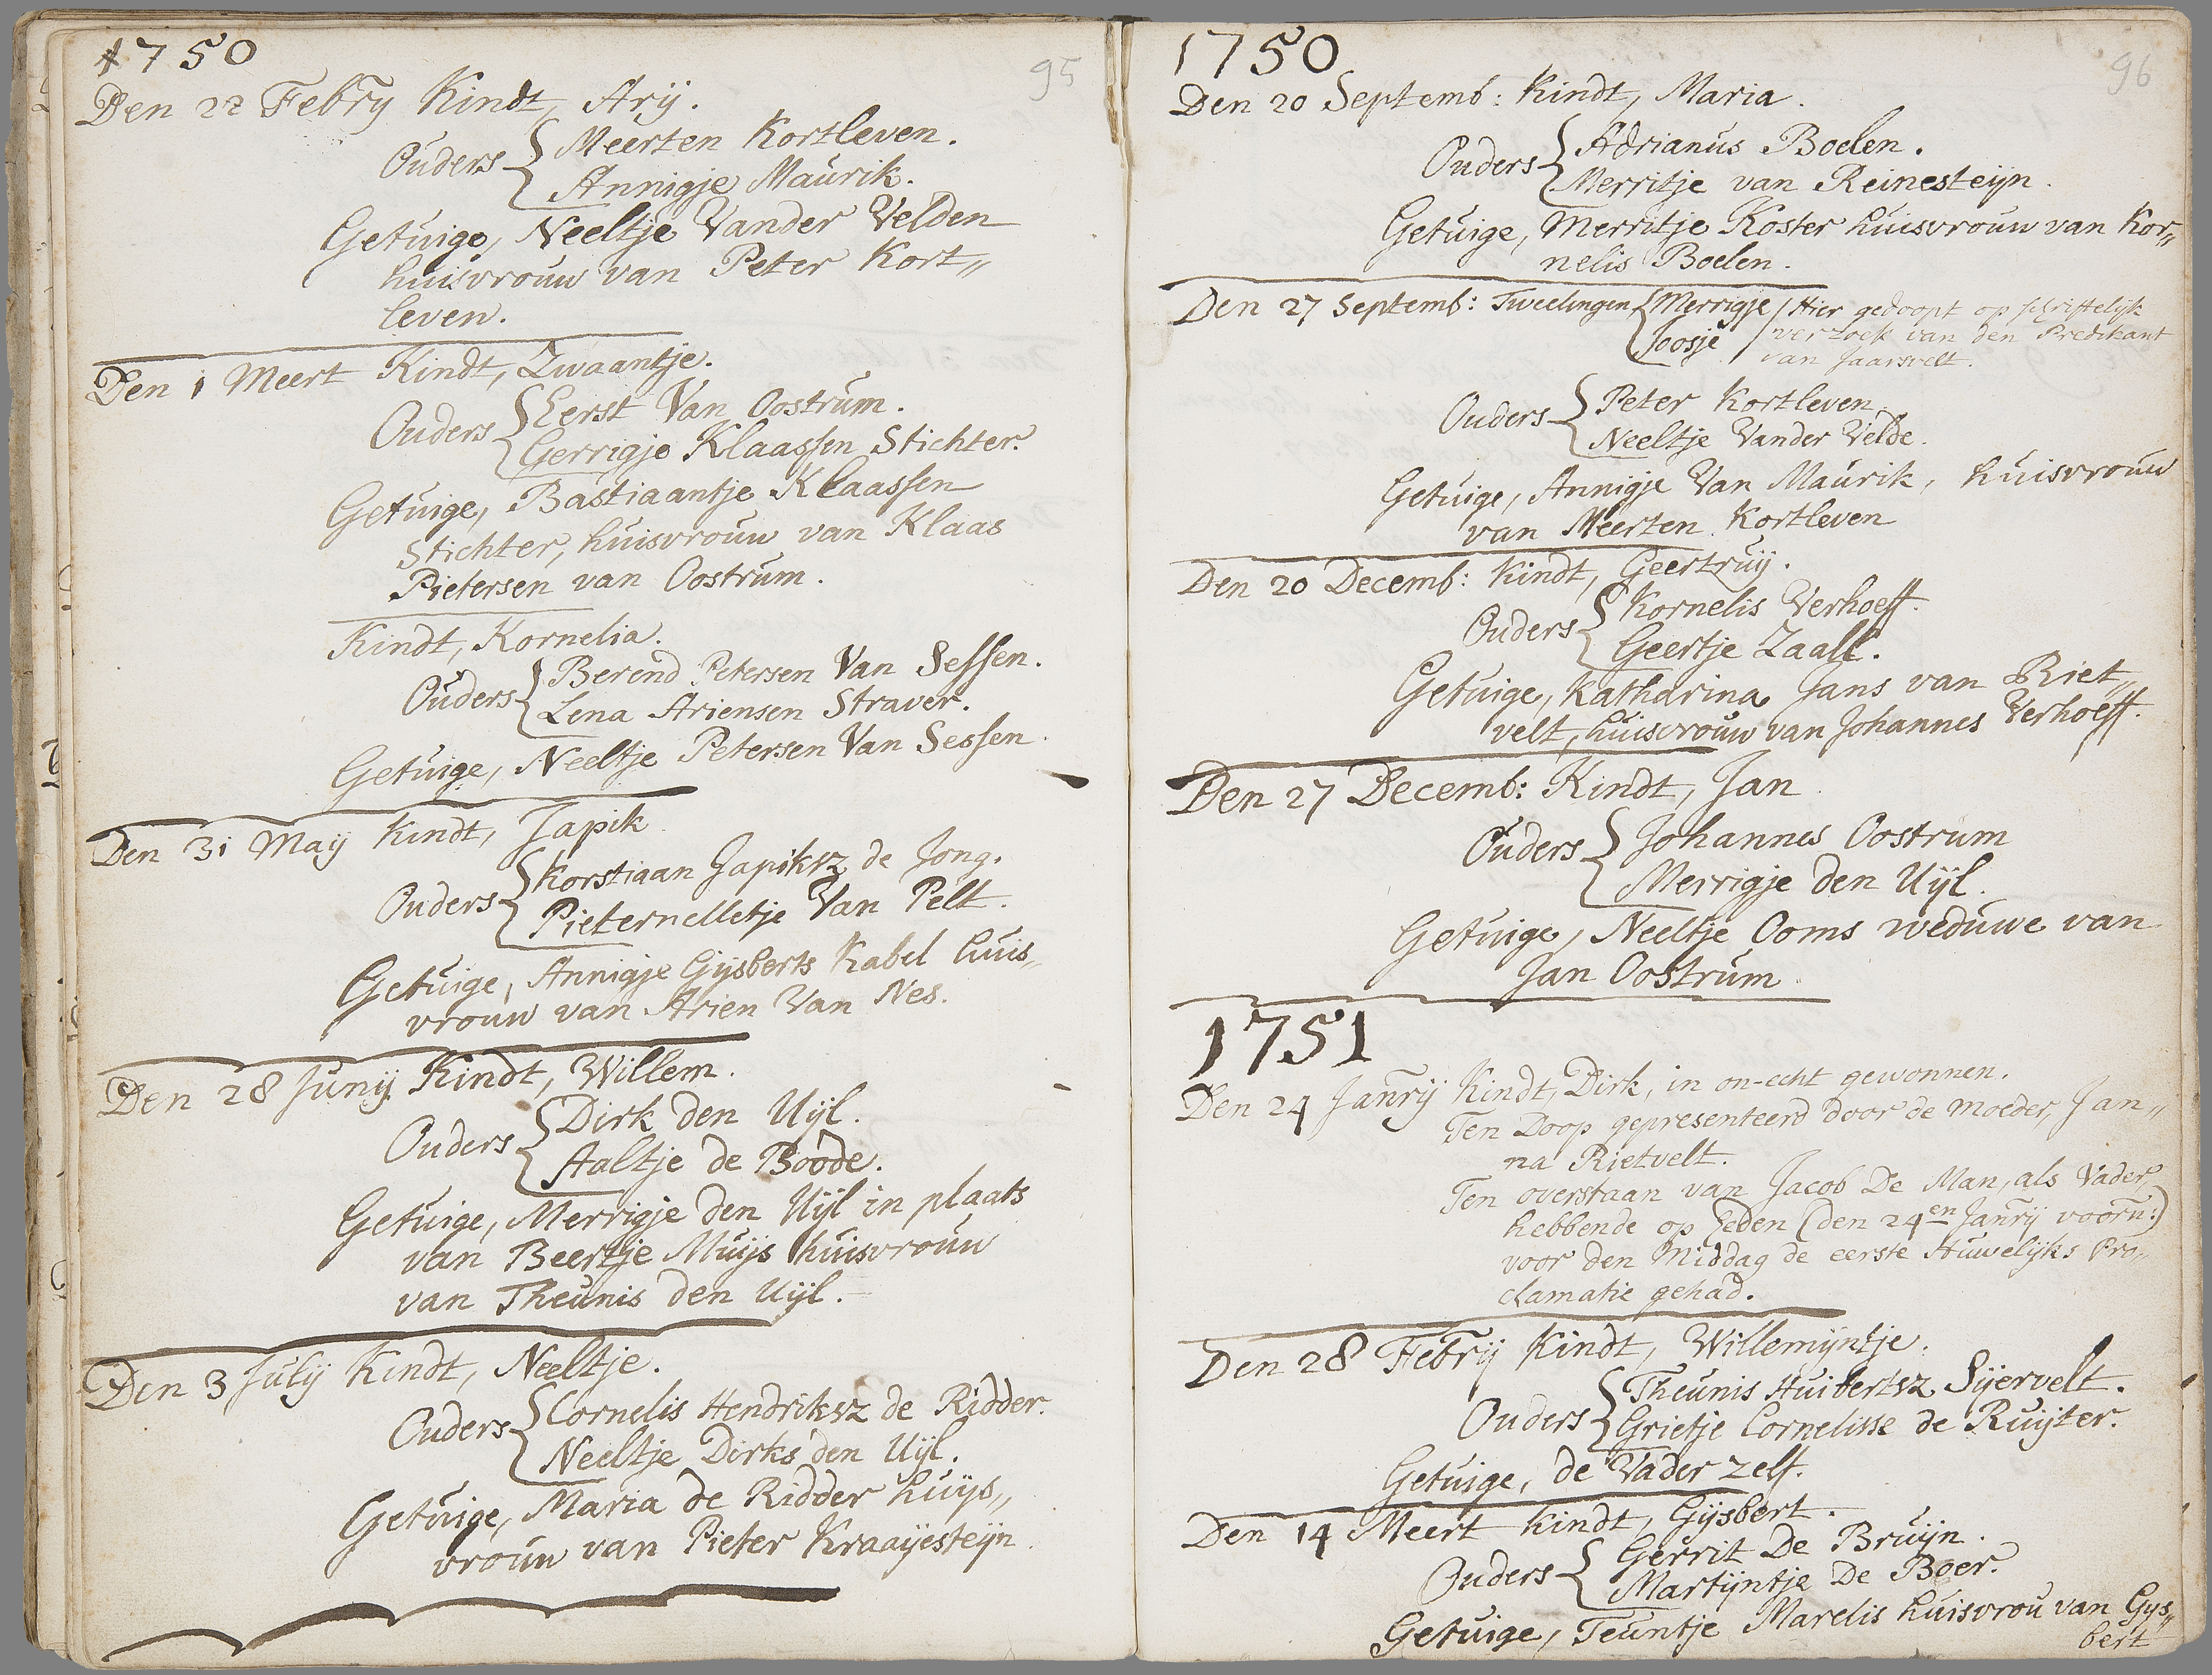 1750
95
Den 22 Febry Kindt, Arij.
Ouders { Meerten Kortleven.
Annigje Maurik.
Getuige, Neeltje Vander Velden
huisvrouw van Peter Kort„
leven.
Den 1 Meert Kindt, Zwaantje.
Ouders { Eerst Van Oostrum.
Gerrigje Klaassen Stichter.
Getuige, Bastiaantje Klaassen
Stichter, huisvrouw van Klaas
Pietersen van Oostrum.
Kindt, Kornelia.
Ouders { Berend Petersen Van Sessen.
Lena Ariensen Straver.
Getuige, Neeltje Petersen Van Sessen.
Den 31 Maij Kindt, Japik
Ouders { Korstiaan Japiksz de Jong.
Pieternelletje Van Pelt.
Getuige, Annigje Gijsberts Kabel huis„
vrouw van Arien Van Nes.
Den 28 Junij Kindt, Willem.
Ouders { Dirk den Uijl.
Aaltje de Boode.
Getuige, Merrigje den Uijl in plaats
van Beertje Muijs huisvrouw
van Theunis den Uijl.
Den 3 Julij Kindt, Neeltje.
Ouders { Cornelis Hendriksz de Ridder.
Neeltje Dirks den Uijl.
Getuige, Maria de Ridder huijs„
vrouw van Pieter Kraaijesteijn.
1750
96
Den 20 Septemb: Kindt, Maria.
Ouders { Adrianus Boelen.
Merritje van Reinesteijn.
Getuige, Merritje Koster huisvrouw van Kor„
nelis Boelen.
Den 27 Septemb: Tweelingen { Merrigje / Hier gedoopt op schriftelijk
Joosje / verzoek van den Predikant
van Jaarsvelt.
Ouders { Peter Kortleven
Neeltje Vander Velde.
Getuige, Annigje Van Maurik, huisvrouw
van Meerten Kortleven
Den 20 Decemb: Kindt, Geertruij.
Ouders { Kornelis Verhoeff.
Geertje Zaall.
Getuige, Katharina Jans van Riet„
velt, huisvrouw van Johannes Verhoeff.
Den 27 Decemb: Kindt, Jan
Ouders { Johannes Oostrum
Merrigje den Uijl.
Getuige, Neeltje Ooms weduwe van
Jan Oostrum.
1751
Den 24 Janrij Kindt, Dirk, in on-echt gewonnen.
Ten Doop gepresenteerd door de Moeder, Jan„
na Rietvelt.
Ten overstaan van Jacob De Man, als Vader,
hebbende op heden (den 24en Janrij voorn:)
voor den Middag de eerste Huwelijks Pro„
clamatie gehad.
Den 28 Febrij Kindt, Willemijntje.
Ouders { Theunis Huibertsz Sijervelt.
Grietje Cornelisse de Ruijter.
Getuige, de Vader zelf.
Den 14 Meert Kindt, Gijsbert.
Ouders { Gerrit De Bruijn.
Martijntje De Boer.
Getuige, Teuntje Marelis huisvrou van Gijs„
bert